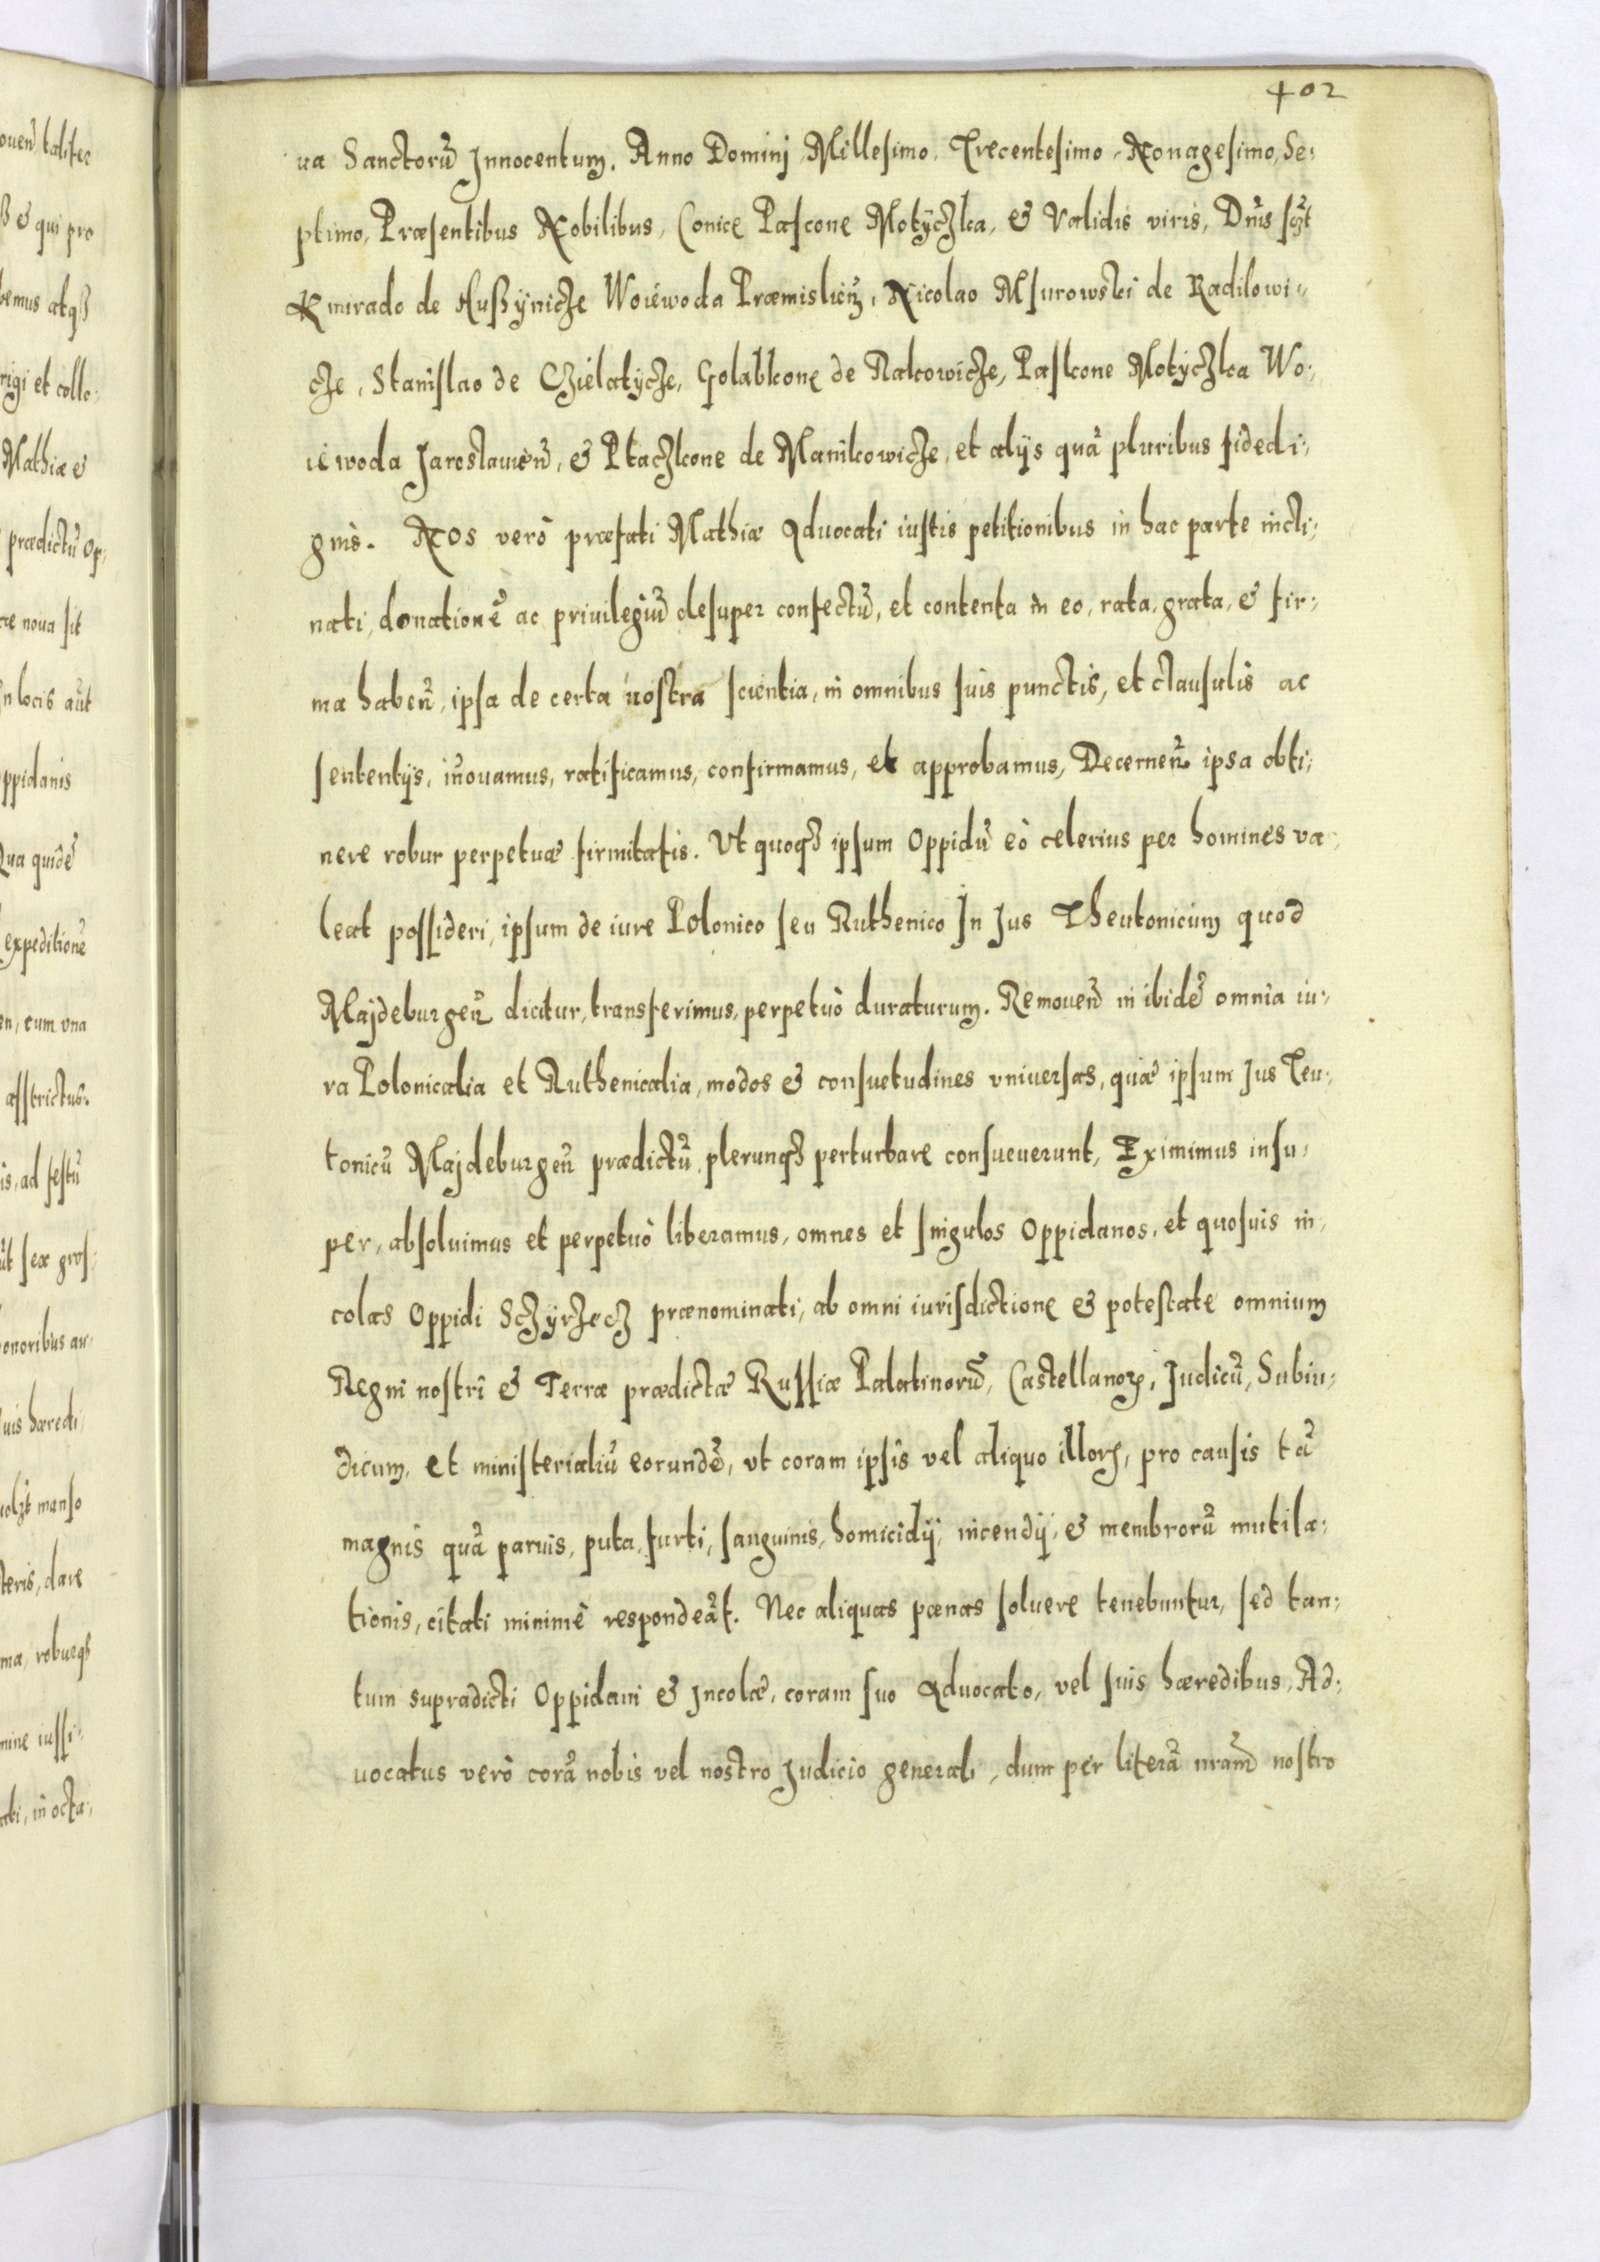 402
ua Sanctorũ Innocentum. Anno Dominj Millesimo, Trecentesimo, Nonagesimo, Se:
ptimo, Præsentibus Nobilibus, Conice Pascone Motyczka, & Validis viris, Dñis sczt
Kmrado de Hußynicze Woiewoda Præmislieñ, Nicolao Msurowski de Radilowi:
cze, Stanislao de Czielatycze, Golabkone de Rakowicze, Paskone Motyczka Wo:
iewoda Jaroslauieñ, & Ptaczkone de Manikowicze, et alijs quã pluribus fidedi:
gnis. Nos verò præfati Mathiæ Aduocati iustis petitionibus in hac parte incli:
nati, donationẽ ac priuilegiũ desuper confectũ, et contenta in eo, rata, grata, & fir:
ma habeñ, ipsa de certa nostra scientia, in omnibus suis punctis, et clausulis ac
sententijs, iñouamus, ratificamus, confirmamus, et approbamus, Decerneñ ipsa obti:
nere robur perpetuæ firmitatis. Ut quoqꝫ ipsum Oppidũ eò celerius per homines va:
leat possideri, ipsum de iure Polonico seu Ruthenico In Jus Theutonicum quod
Majdeburgeñ dicitur, transferimus, perpetuò duraturum. Remoueñ in ibidẽ omnia iu:
ra Polonicalia et Ruthenicalia, modos & consuetudines vniuersas, quæ ipsum Jus Teu:
tonicũ Majdeburgeñ prædictũ plerunqꝫ perturbare consueuerunt, Eximimus insu:
per, absoluimus et perpetuò liberamus, omnes et singulos Oppidanos, et quosuis in:
colas Oppidi Sczyrzecz prænominati, ab omni iurisdictione & potestate omnium
Regni nostri & Terræ prædictæ Russiæ Palatinorũ, Castellanoꝝ, Judicũ, Subiu:
dicum, et ministerialiũ eorundẽ, vt coram ipsis vel aliquo illoꝝ, pro causis tã
magnis quã paruis, puta, furti, sanguinis, homicidij, incendij, & membrorũ mutila:
tionis, citati minimè respondeãt. Nec aliquas pœnas soluere tenebuntur, sed tan:
tum supradicti Oppidani & Jncolæ, coram suo Aduocato, vel suis hæredibus, Ad:
uocatus verò corã nobis vel nostro Judicio generali, dum per literã nram̃ nostro